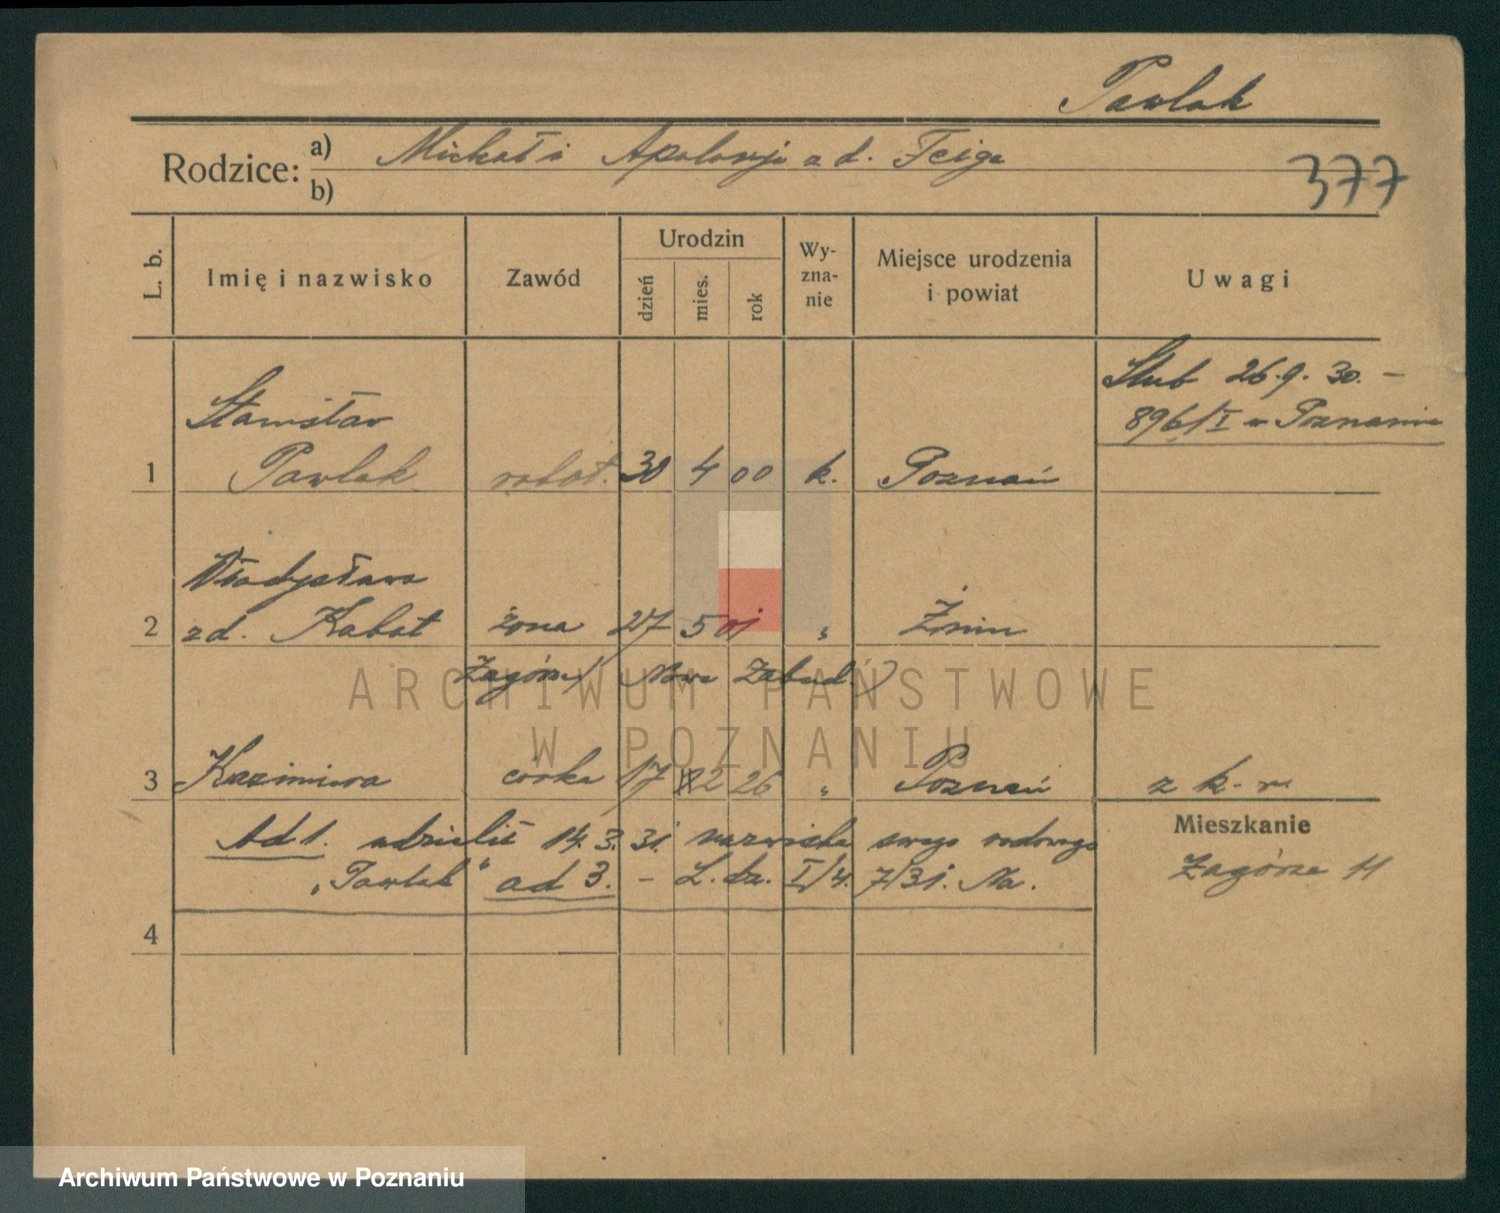 Pawlak
Rodzice: a) Michał i Apolonja z d. Feige
b)
377
L. b.
Imię i nazwisko
Zawód
Urodzin
dzień
mies.
rok
Wy-
zna-
nie
Miejsce urodzenia
i powiat
Uwagi
Ślub 26.9.30. –
896/I w Poznaniu
Stanisław
1 Pawlak robot. 30 4 00 k. Poznań
Władysława
2 zd. Kabat żona 27 5 01 " Żnin
Zagórze (Nowe Zabud.)
3 Kazimiera córka 17 2 26 " Poznań z k. r.
Ad 1. udzielił 14.3.31. nazwiska swego rodowego
"Pawlak" ad 3. – L. dz. I/4. 7/31. Na.
Mieszkanie
Zagórze 11
4
ARCHIWUM PAŃSTWOWE
W POZNANIU
Archiwum Państwowe w Poznaniu